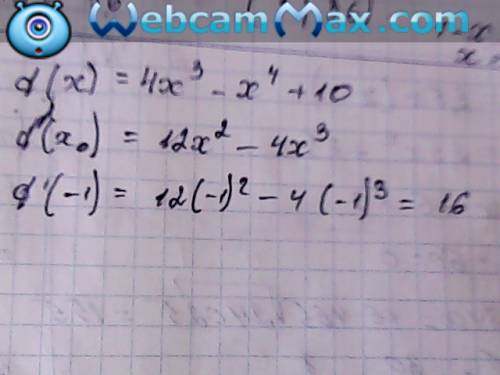 WebcamMax.com
f(x) = 4x³ - x⁴ + 10
f'(x₀) = 12x² - 4x³
f'(-1) = 12(-1)² - 4(-1)³ = 16